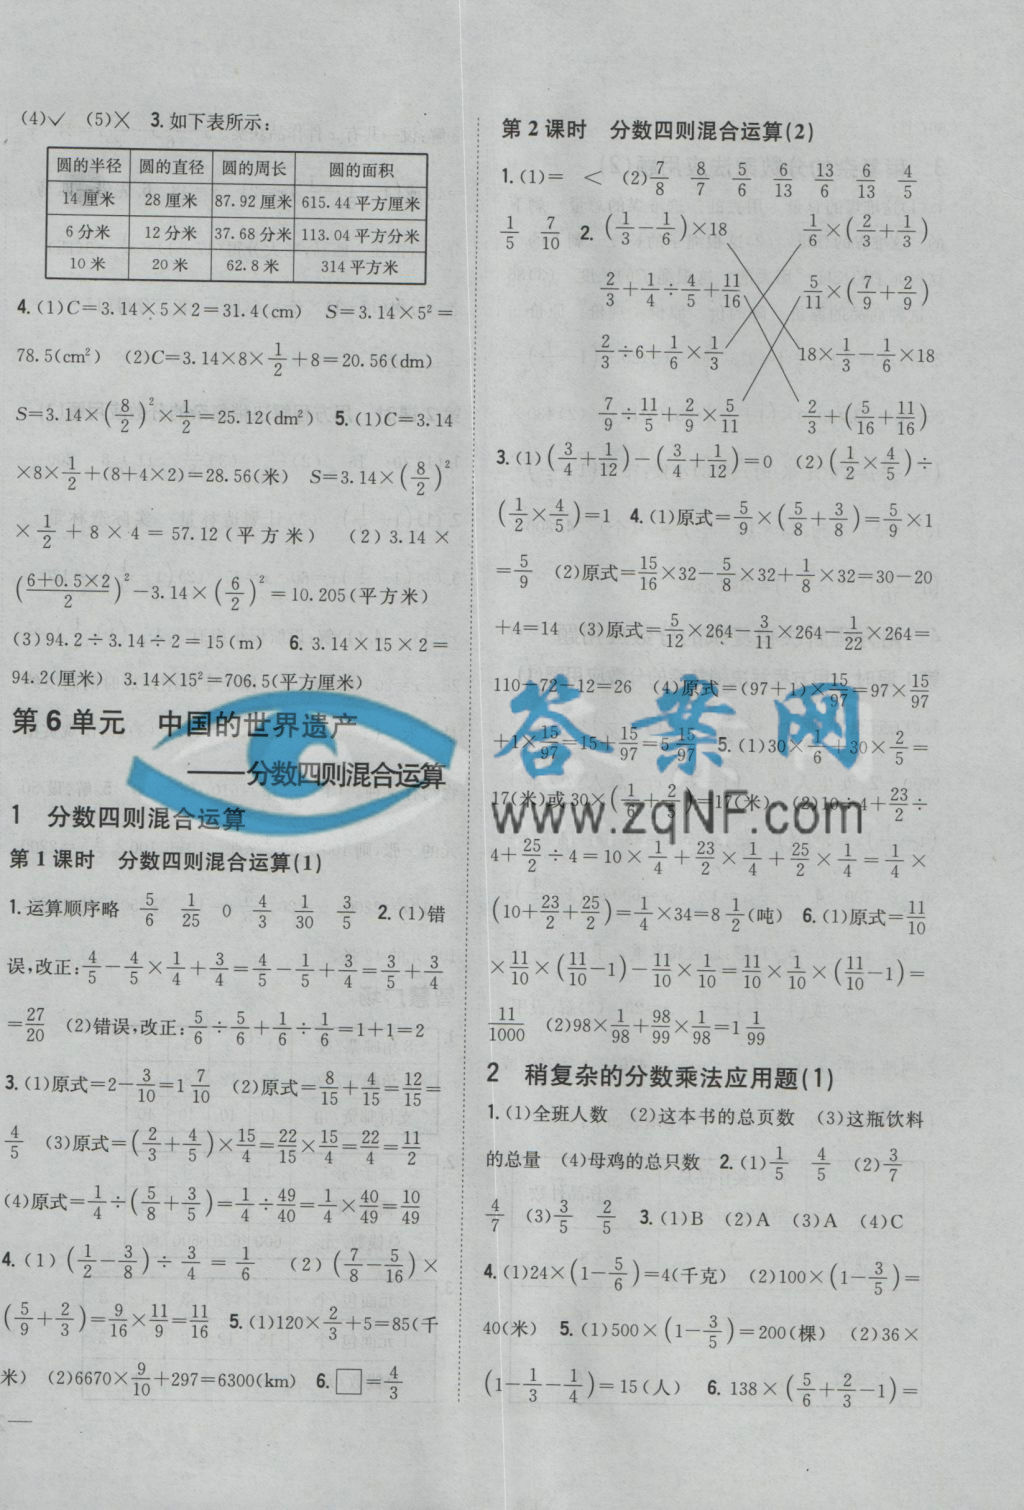 (4)✓ (5)╳ 3.如下表所示:
圆的半径 圆的直径 圆的周长 圆的面积
14厘米 28厘米 87.92厘米 615.44平方厘米
6分米 12分米 37.68分米 113.04平方分米
10米 20米 62.8米 314平方米
4.(1)C=3.14×5×2=31.4(cm) S=3.14×5²=
78.5(cm²) (2)C=3.14×8×1/2+8=20.56(dm)
S=3.14×(8/2)²×1/2=25.12(dm²) 5.(1)C=3.14
×8×1/2+(8+4×2)=28.56(米) S=3.14×(8/2)²
×1/2+8×4=57.12(平方米) (2)3.14×
((6+0.5×2)/2)²-3.14×(6/2)²=10.205(平方米)
(3)94.2÷3.14÷2=15(m) 6.3.14×15×2=
94.2(厘米) 3.14×15²=706.5(平方厘米)
第6单元 中国的世界遗产
——分数四则混合运算
1 分数四则混合运算
第1课时 分数四则混合运算(1)
1.运算顺序略 5/6 1/25 0 4/3 1/30 3/5 2.(1)错
误,改正:4/5-4/5×1/4+3/4=4/5-1/5+3/4=3/5+3/4
=27/20 (2)错误,改正:5/6÷5/6+1/6÷1/6=1+1=2
3.(1)原式=2-3/10=1 7/10 (2)原式=8/15+4/15=12/15=
4/5 (3)原式=(2/3+4/5)×15/4=22/15×15/4=22/4=11/2
(4)原式=1/4÷(5/8+3/5)=1/4÷49/40=1/4×40/49=10/49
4.(1)(1/2-3/8)÷3/4=1/6 (2)(7/8-5/16)×
(5/9+2/3)=9/16×11/9=11/16 5.(1)120×2/3+5=85(千
米) (2)6670×9/10+297=6300(km) 6.□=4/3
第2课时 分数四则混合运算(2)
1.(1)= < (2)7/8 8/7 5/6 6/13 13/6 6/13 4/5
1/5 7/10 2.(1/3-1/6)×18 1/6×(2/3+1/3)
2/3+1/4÷4/5+11/16 5/11×(7/9+2/9)
2/3÷6+1/6×1/3 18×1/3-1/6×18
7/9÷11/5+2/9×5/11 2/3+(5/16+11/16)
3.(1)(3/4+1/12)-(3/4+1/12)=0 (2)(1/2×4/5)÷
(1/2×4/5)=1 4.(1)原式=5/9×(5/8+3/8)=5/9×1
=5/9 (2)原式=15/16×32-5/8×32+1/8×32=30-20
+4=14 (3)原式=5/12×264-3/11×264-1/22×264=
110-72-12=26 (4)原式=(97+1)×15/97=97×15/97
+1×15/97=15+15/97=15/97 5.(1)30×1/6+30×2/5=
17(米)或30×(1/6+2/5)=17(米) (2)10÷4+23/2÷
4+25/2÷4=10×1/4+23/2×1/4+25/2×1/4=1/4×
(10+23/2+25/2)=1/4×34=8 1/2(吨) 6.(1)原式=11/10
×11/10×(11/10-1)-11/10×1/10=11/10×1/10×(11/10-1)=
11/1000 (2)98×1/98+98/99×1/98=1 1/99
2 稍复杂的分数乘法应用题(1)
1.(1)全班人数 (2)这本书的总页数 (3)这瓶饮料
的总量 (4)母鸡的总只数 2.(1)1/5 4/5 (2)3/7
4/7 (3)3/5 2/5 3.(1)B (2)A (3)A (4)C
4.(1)24×(1-5/6)=4(千克) (2)100×(1-3/5)=
40(米) 5.(1)500×(1-3/5)=200(棵) (2)36×
(1-1/3-1/4)=15(人) 6.138×(5/6+2/3-1)=
答案网
www.zqNF.com